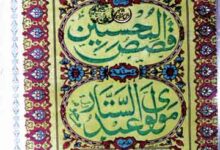 قصص الحسین
مولوی عبدالستار